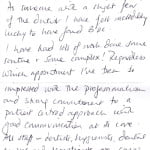 As someone with a slight fear
of the dentist I have felt incredibly
lucky to have found
I have had lots of work done some
routine & some complex. Regardless
which appointment I've been so
impressed with the professionalism
and strong commitment to a
patient centred approach with
good communication at its core.
All staff - dentists, hygienists, dental